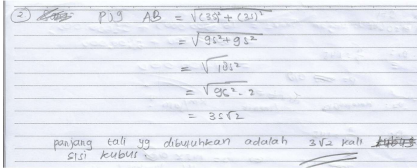 ② Pjg AB = √(3s)² + (3s)²
= √9s² + 9s²
= √18s²
= √9s² . 2
= 3s√2
panjang tali yg dibutuhkan adalah 3√2 kali
sisi kubus.